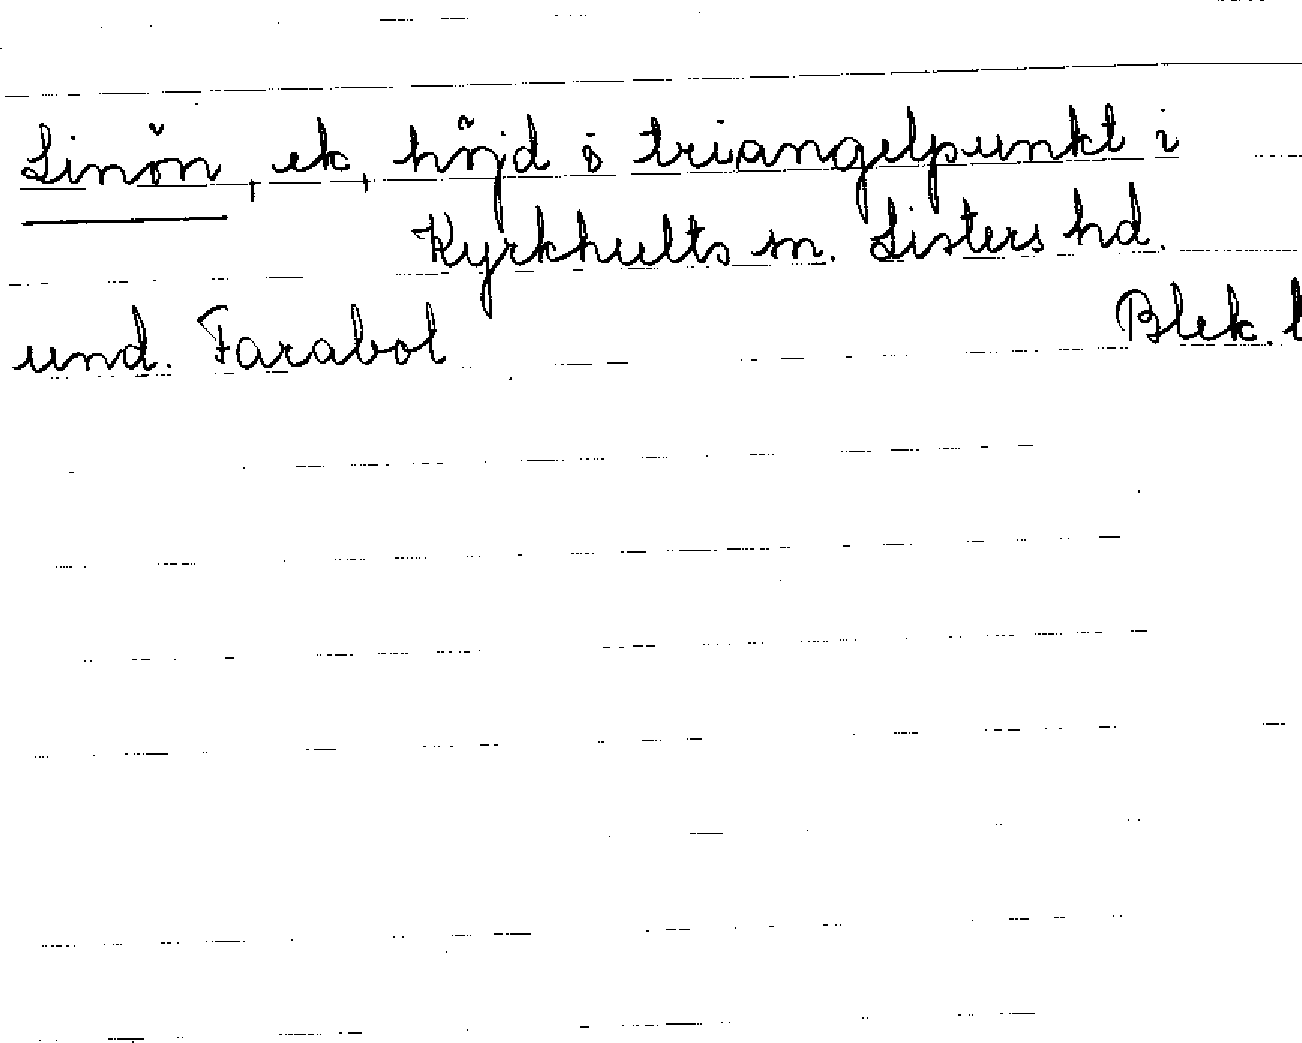 Linön, ek, höjd o triangelpunkt i
Kyrkhults sn. Listers hd.
und. Farabol Blek. l